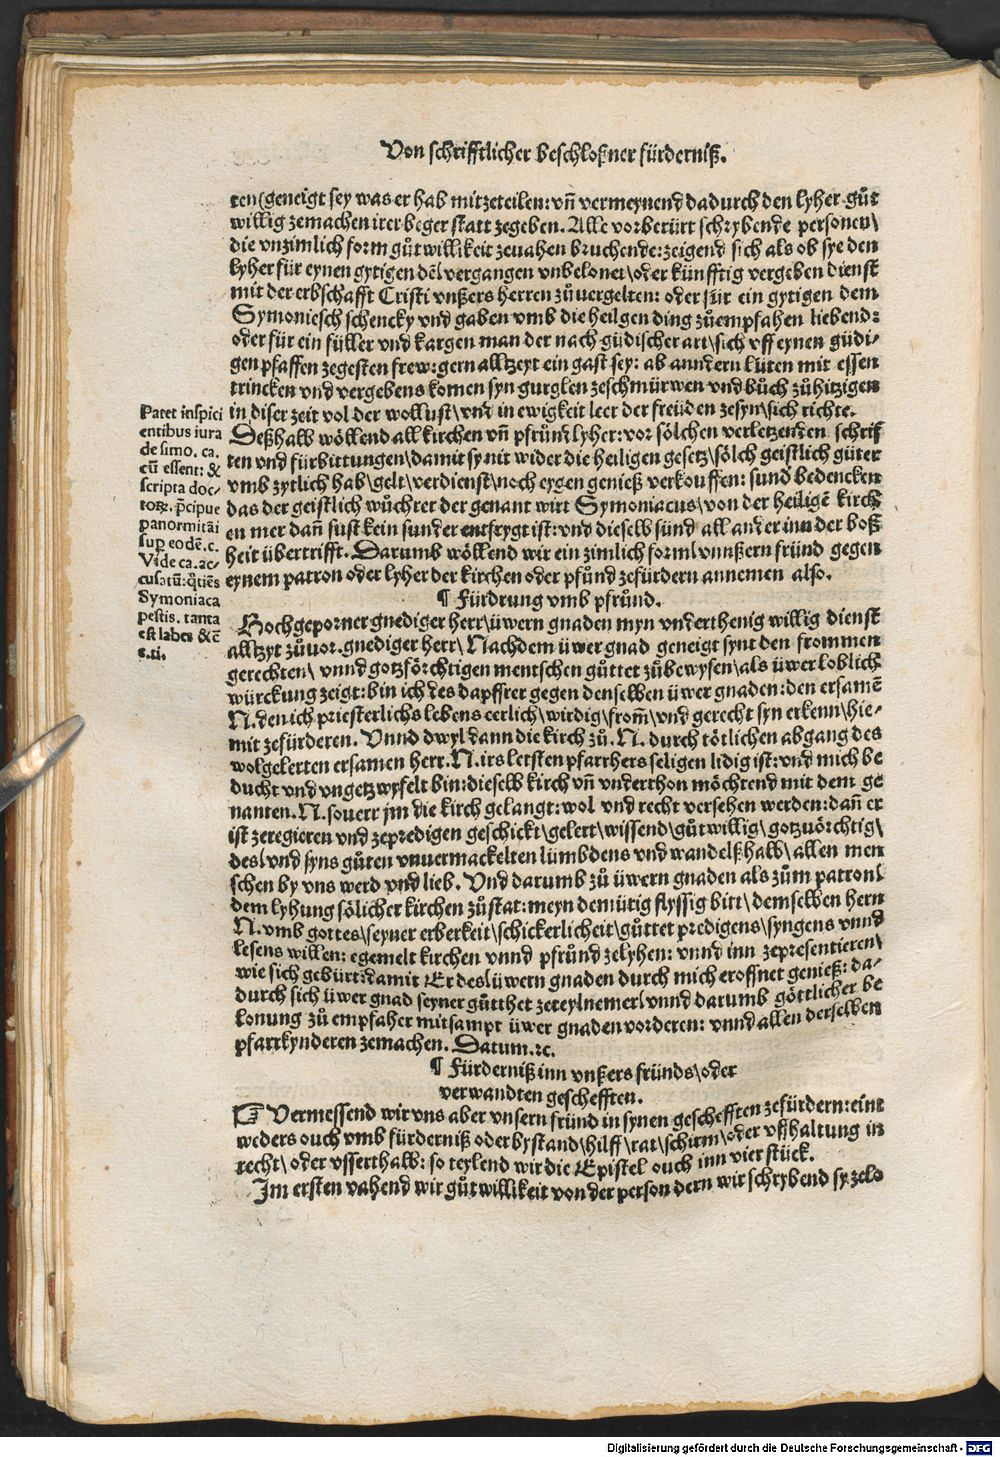 Von schrifftlicher beschloßner fürderniß.
ten (geneigt sey was er hab mitzeteilen: vñ vermeynend dadurch den lyher gůt
willig zemachen irer beger statt zegeben. Alle vorberürt schrybende personen\
die vnzimlich form gůtwillikeit zeuahen bruchende: zeigend sich als ob sye den
lyher für eynen gytigen dē\ vergangen vnbelonet\ oder künfftig vergeben dienst
mit der erbschafft Cristi vnßers herren zůuergelten: oder für ein gytigen dem
Symoniesch schencky vnd gaben vmb die heilgen ding zůempfahen liebend:
oder für ein füller vnd kargen man der nach güdischer art\ sich vff eynen güdi-
gen pfaffen zegesten frew: gern alltzeyt ein gast sey: ab anndern lüten mit essen
trincken vnd vergebens komen syn gurglen zeschmürwen vnd bůch zůhitzigen
in diser zeit vol der wollust\ vnd in ewigkeit leer der freüden zesyn\ sich richte.
Deßhalb wöllend all kirchen vñ pfrůnd lyher: vor sölchen verletzenden schrif
ten vnd fürbittungen\ damit sy nit wider die heiligen gesetz\ sölch geistlich güter
vmb zytlich hab\ gelt\ verdienst\ noch eygen genieß verkouffen: sund bedencken
das der geistlich wůchrer der genant wirt Symoniacus\ von der heiligē kirch
en mer dañ sust kein sunder entsrygt ist: vnd dieselb sünd all ander inn der boß
heit übertrifft. Darumb wöllend wir ein zimlich form\ vnnßern fründ gegen
eynem patron oder lyher der kirchen oder pfůnd zefürdern annemen also.
Patet inspici
entibus iura
de simo. ca.
cū essent: &
scripta doc-
torꝝ. p̄cipue
panormitāi
sup eodē. c.
Vide ca. ac-
cusatū: q̄tiēs
Symoniaca
pestis. tanta
est labes &c̄
¶ Fürdrung vmb pfrůnd.
Hochgeporner gnediger herr\ üwern gnaden myn vnderthenig willig dienst
alltzyt zůuor. gnediger herr\ Nachdem üwer gnad geneigt synt den frommen
gerechten\ vnnd gotzförchtigen mentschen gůttet zůbewysen\ als üwer loblich
würckung zeigt: bin ich des dapffrer gegen denselben üwer gnaden: den ersamē
N. den ich priesterlichs lebens eerlich\ wirdig\ from̄\ vnd gerecht syn erkenn\ hie-
mit zefürderen. Vnnd dwyl dann die kirch zů. N. durch tötlichen abgang des
wolgelerten ersamen herr. N. irs letsten pfarrhers seligen lidig ist: vnd mich be
ducht vnd vngetzwyfelt bin: dieselb kirch vñ vnderthon möchtend mit dem ge
nanten. N. souerr jm die kirch gelangt: wol vnd recht versehen werden: dañ er
ist zeregieren vnd zepredigen geschickt\ gelert\ wissend\ gůtwillig\ gotzuörchtig\
des\ vnd syns gůten vnuermackelten lümbdens vnd wandelßhalb\ allen men
schen by vns werd vnd lieb. Vnd darumb zů üwern gnaden als zům patron\
dem lyhung sölicher kirchen zůstat: meyn demütig flyssig bitt\ demselben hern
N. vmb gottes\ seyner erberkeit\ schickerlicheit\ gůttet predigens\ syngens vnnd
lesens willen: egemelt kirchen vnnd pfrůnd zelyhen: vnnd inn zepresentieren\
wie sich gebürt: damit Er des\ üwern gnaden durch mich eroffnet genieß: da-
durch sich üwer gnad seyner gůtthet zeteylnemer\ vnnd darumb göttlicher be
lonung zů empfaher mitsampt üwer gnaden vorderen: vnnd allen derselben
pfarrkynderen zemachen. Datum. ꝛc.
¶ Fürderniß inn vnßers fründs\ oder
verwandten geschefften.
☞ Vermessend wir vns aber vnsern fründ in synen geschefften zefürdern: eint
weders ouch vmb fürderniß oder bystand\ hilff\ rat\ schirm\ oder vffhaltung in
recht\ oder vsserthalb: so teylend wir die Epistel ouch inn vier stück.
Im ersten vahend wir gůtwillikeit von der person dern wir schrybend sy zelo
Digitalisierung gefördert durch die Deutsche Forschungsgemeinschaft - DFG